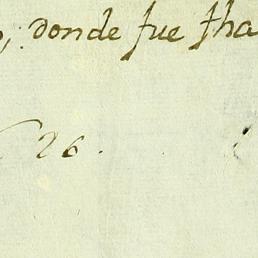 , donde fue tha
26.